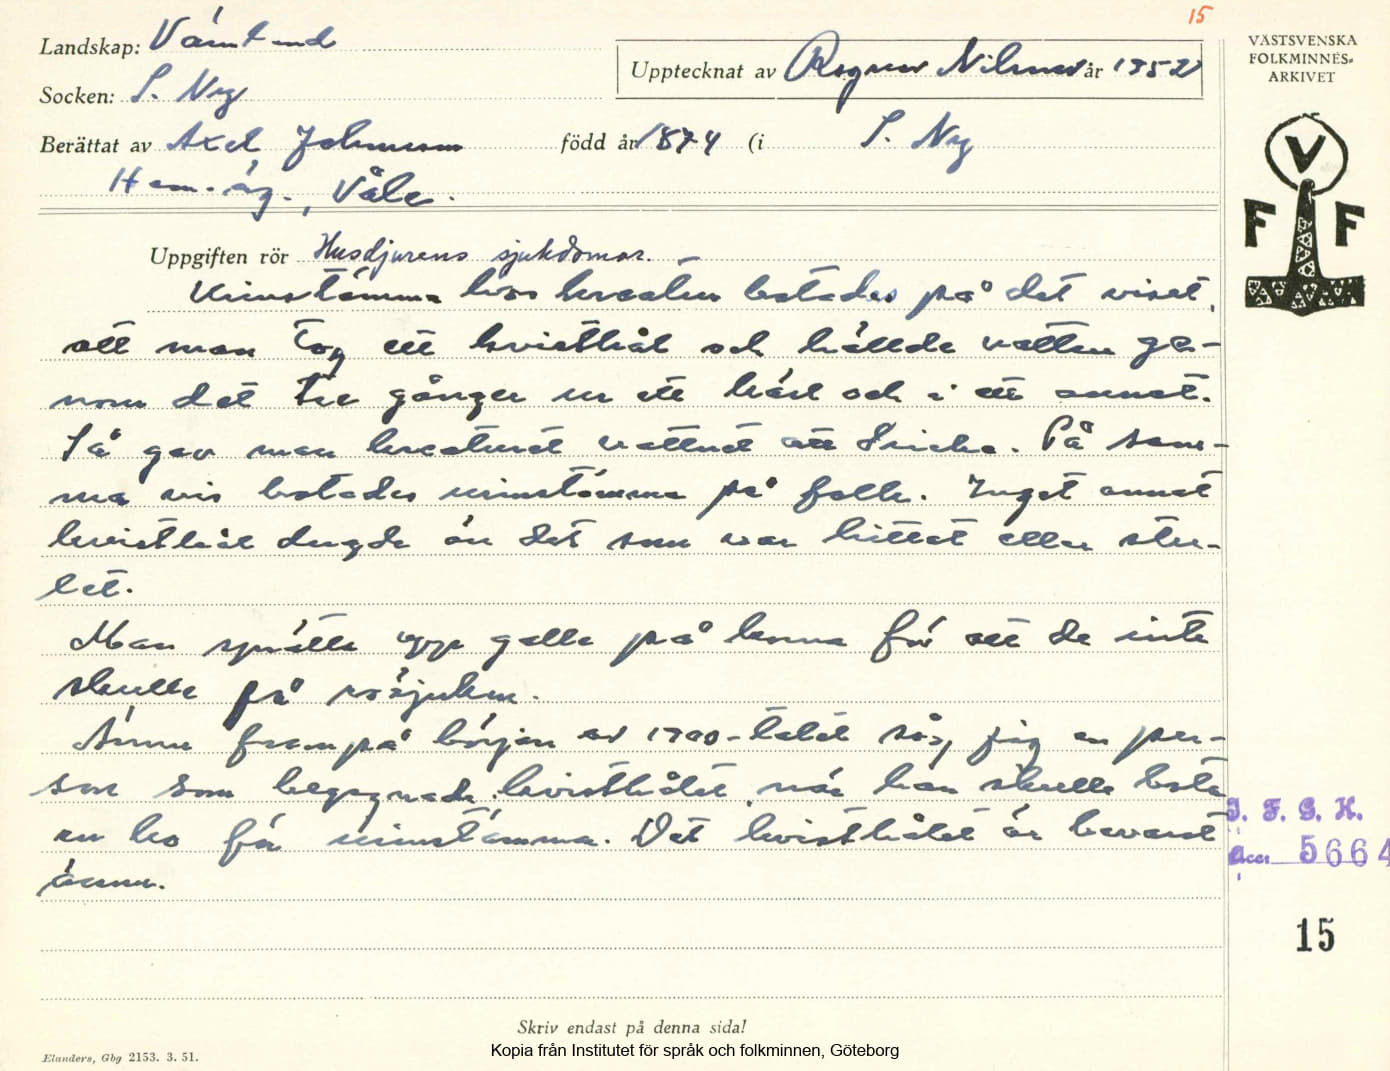 15
Landskap: Värmland
Upptecknat av Ragnar Nilsson år 1952
Socken: S. Ny
Berättat av Axel Johnsson född år 1874 (i S. Ny
Hem.äg., Våle.
VÄSTSVENSKA
FOLKMINNES-
ARKIVET
V
F F
Uppgiften rör Husdjurens sjukdomar.
Urinstämma hos kreatur botades på det viset,
att man tog ett kvisthål och hällde vatten ge-
nom det tre gånger ur ett kärl och i ett annat.
Så gav man kreaturet vattnet att dricka. På sam-
ma vis botades urinstämma på folk. Inget annat
kvisthål dugde än det som var hittat eller stu-
let.
Man sprätte upp galla på korna för att de inte
skulle få rösjukan.
Ännu frampå början av 1900-talet såg jag en per-
son som begagnade kvisthålet när han skulle bota
en ko för urinstämma. Det kvisthålet är bevarat
ännu.
I. F. G. H.
Acc. 5664
15
Skriv endast på denna sida!
Kopia från Institutet för språk och folkminnen, Göteborg
Elanders, Gbg 2153. 3. 51.